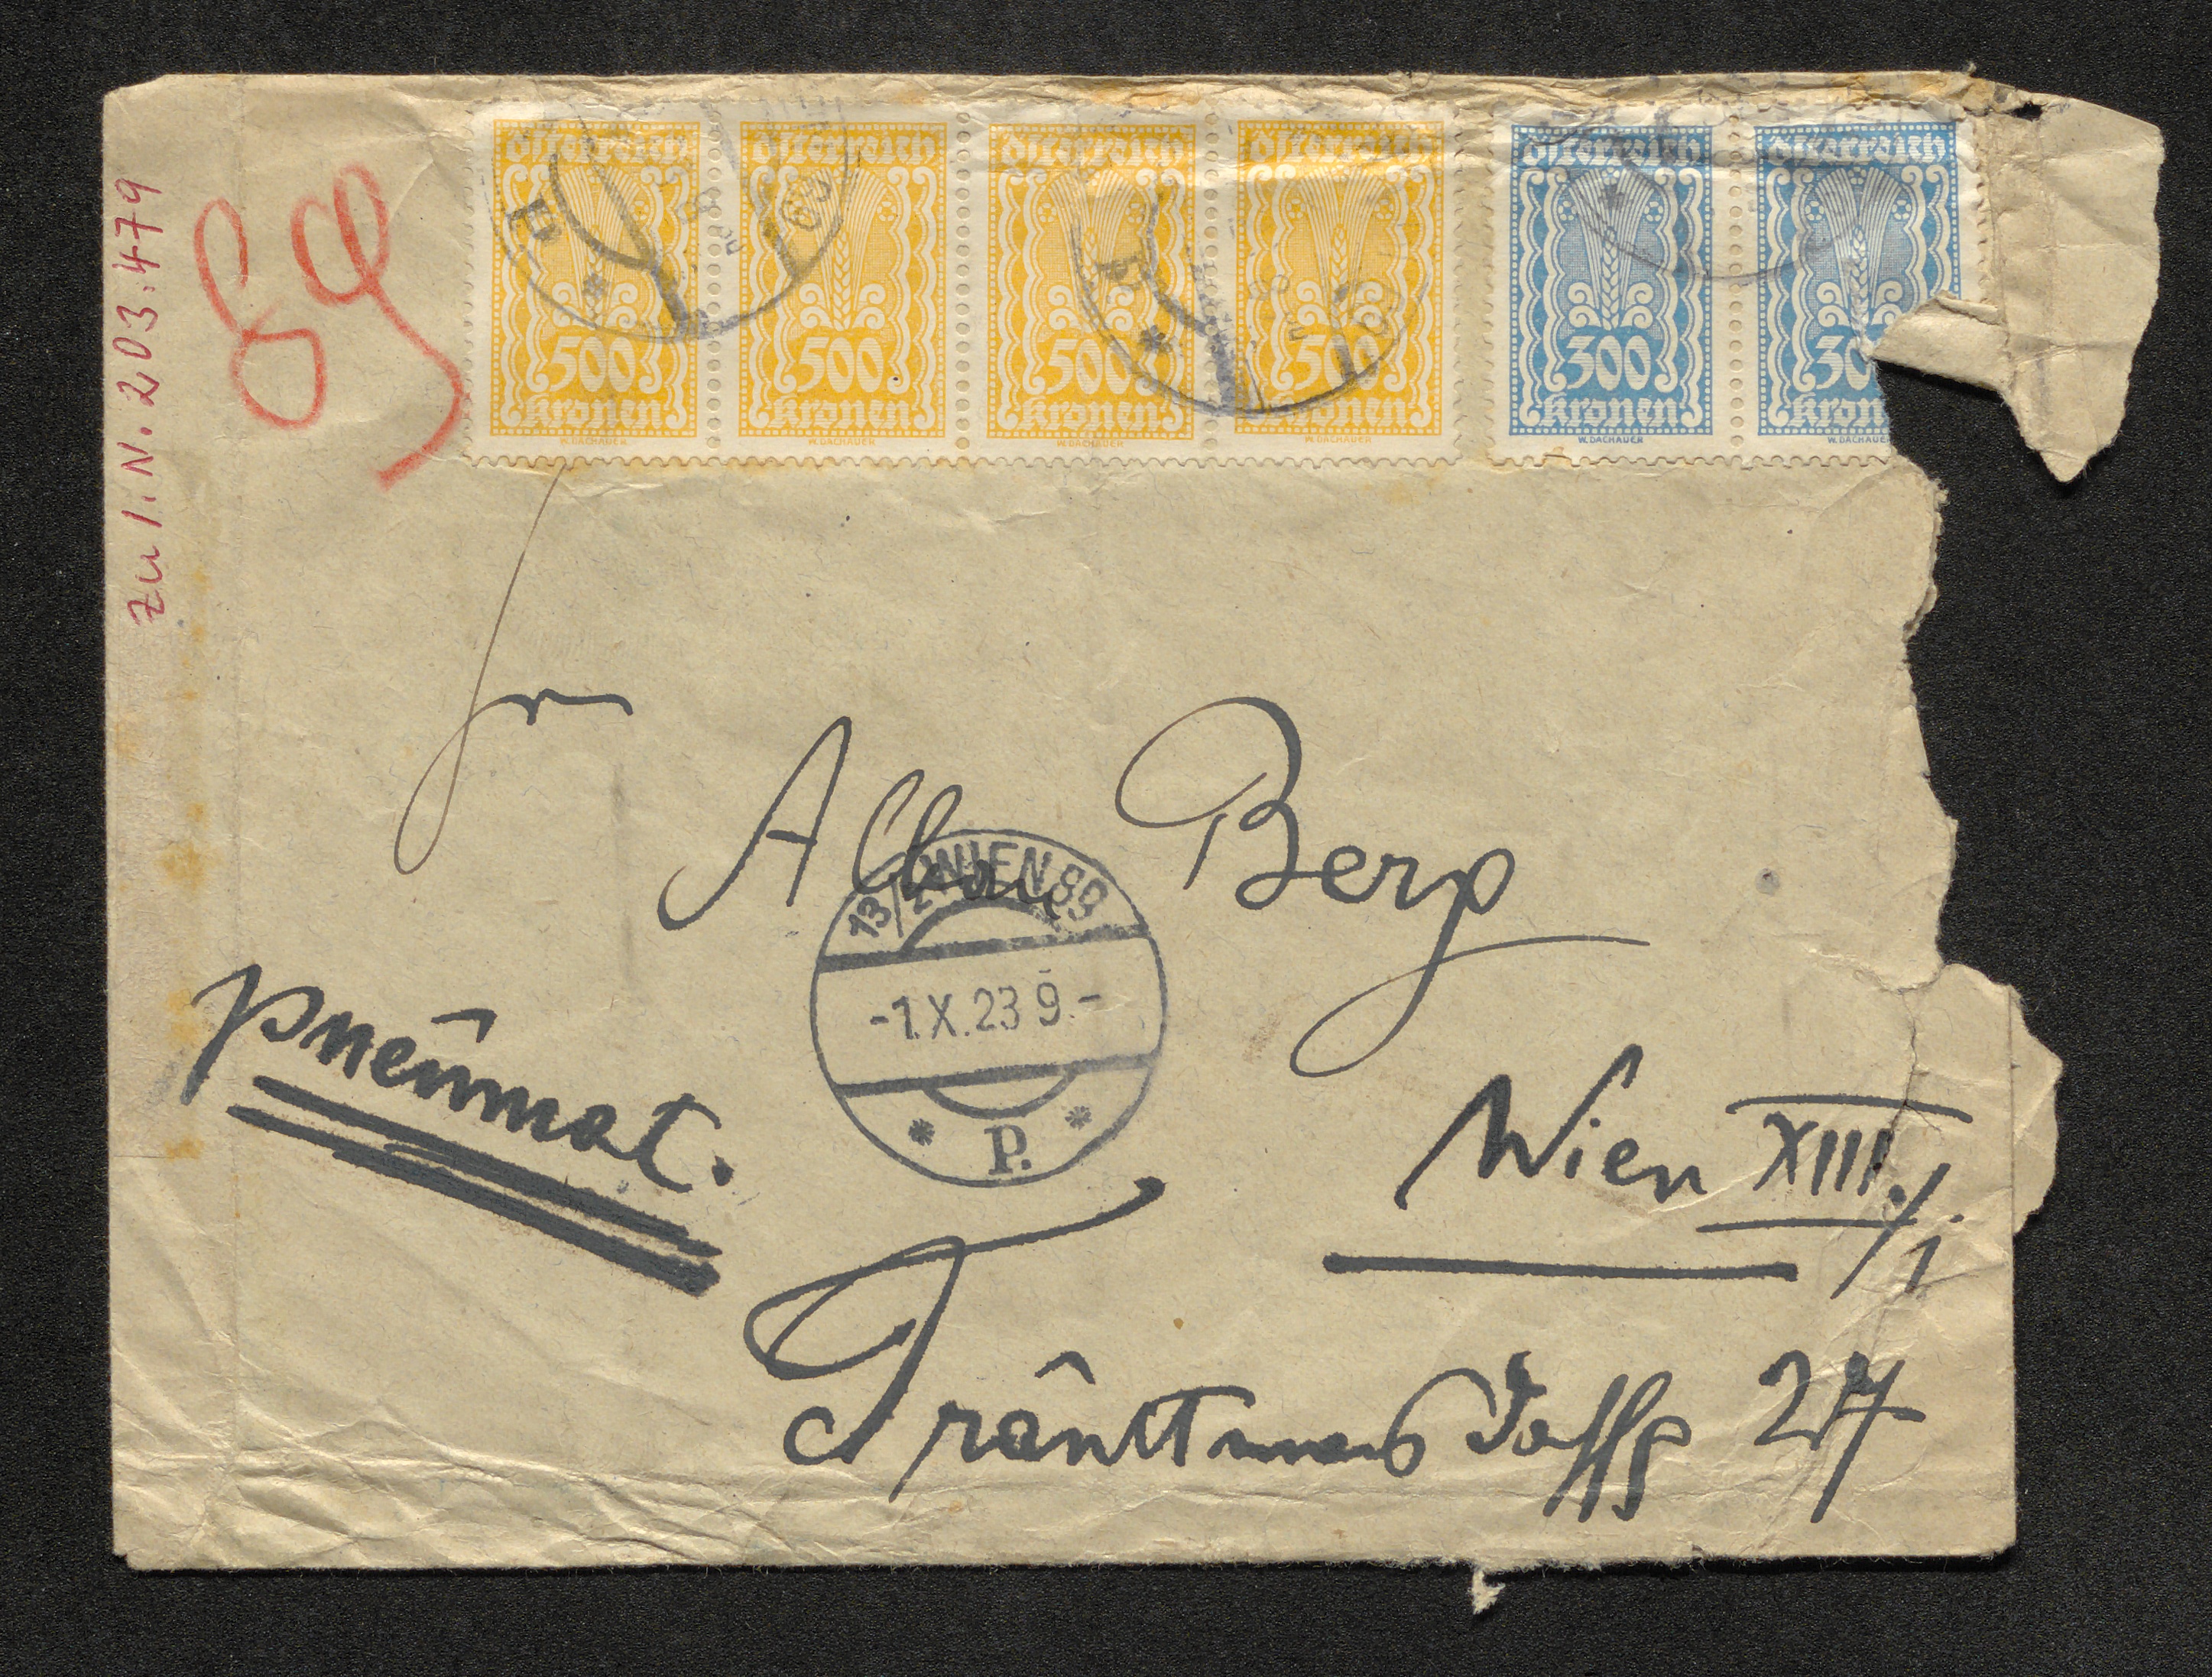 Zu I.N. 203.479
89
Österreich Österreich Österreich Österreich Österreich Österreich
500 500 500 500 300 30
Kronen Kronen Kronen Kronen Kronen Kron
W. DACHAUER W. DACHAUER W. DACHAUER W. DACHAUER W. DACHAUER W. DACHAUER
P * 89
P *
*
Hrn
Alban Berg
13/2 WIEN 89
-1.X.23 9.-
* P. *
pneumat.
Wien XIII./1.
Trauttmansdorffg 27